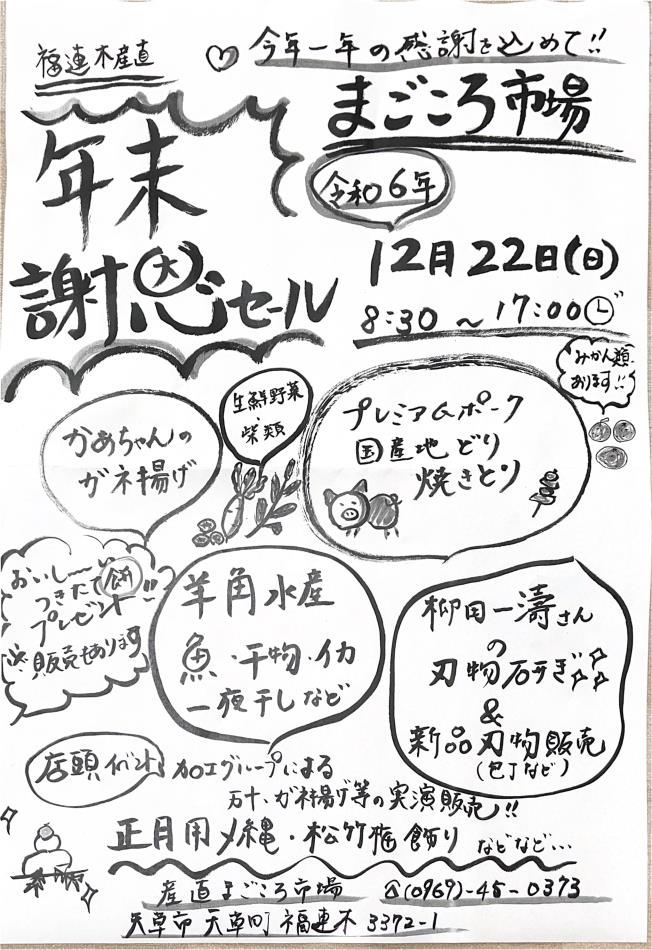 福連木産直
♡今年一年の感謝を込めて!!
まごころ市場
年末
謝恩セール
令和6年
12月22日(日)
8:30～17:00
みかん類
あります!!
生鮮野菜
・柴類
プレミアムポーク
国産地どり
焼きとり
かあちゃんの
ガネ揚げ
おいし～
つきたて餅!!
プレゼント
※販売もあります
羊角水産
魚・干物・イカ
一夜干しなど
柳田一濤さん
の
刃物研ぎ
&
新品刃物販売
(包丁など)
店頭イベント 加工グループによる
ガネ揚げ等の実演販売!!
正月用〆縄・松竹梅飾り などなど…
産直まごころ市場 ☎(0969)-45-0373
天草市天草町福連木3372-1